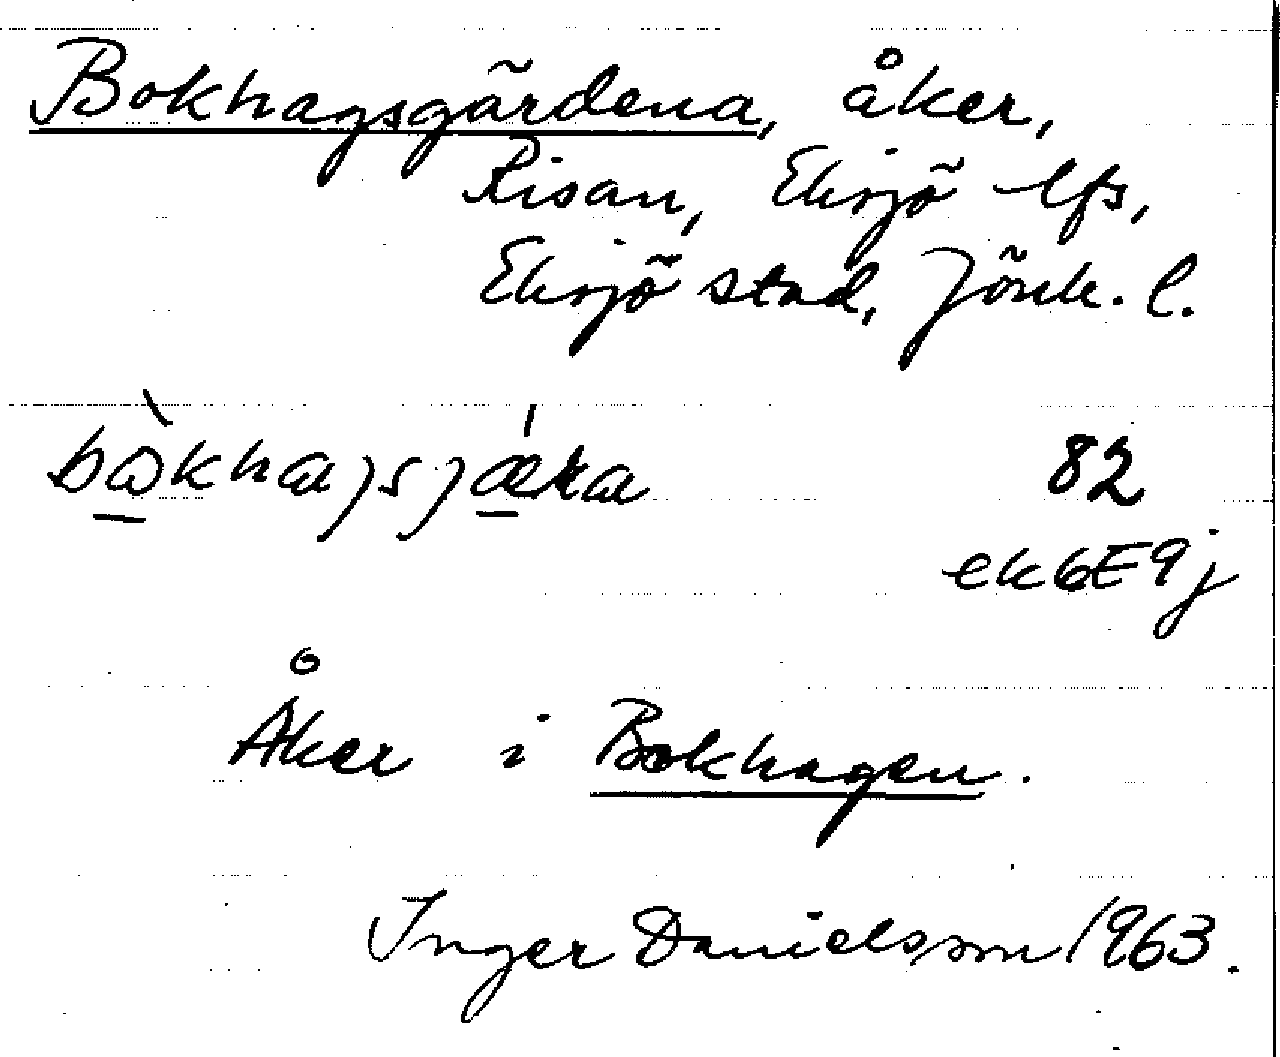 Bokhagsgärdena, åker,
Risan, Eksjö lfs,
Eksjö stad, Jönk. l.
82
ek6E9j
Åker i Bokhagen.
Inger Danielsson 1963.